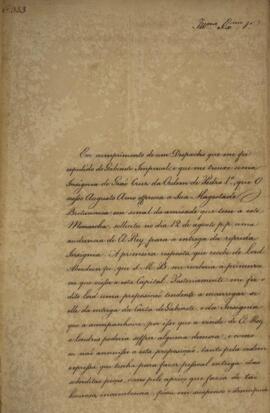 Illmo. Exmo. Sr.
Em cumprimento de um Despacho que me foi
expedido do Gabinete Imperial e que me trouxe uma
Insignia de Grão Cruz da Ordem de Pedro 1º, que O
nosso Augusto Amo offerece a Sua Magestade
Britannica em signal da amizade que tem a este
Monarcha, sollicitei no dia 12 de agosto p. p. uma
audiencia de El Rey para a entrega da referida
Insignia. A primeira resposta que recebi de Lord
Aberdeen foi, que S. M. B. me receberia a primeira
vez que viesse a esta Capital. Posteriormente me fez
dito Lord uma proposição tendente a encarregar-se
elle da entrega da Carta de Gabinete, e da Insignia
que a acompanhava, por isso que a vinda de El Rey
a Londres poderia soffrer alguma demora, e como
eu não annuisse a esta proposição, tanto pela ordem
expressa que tinha para fazer pessoal entrega das
sobreditas peças, como pelo apreço que fazia de tal
honrosa incumbencia, ficou em suspenso o